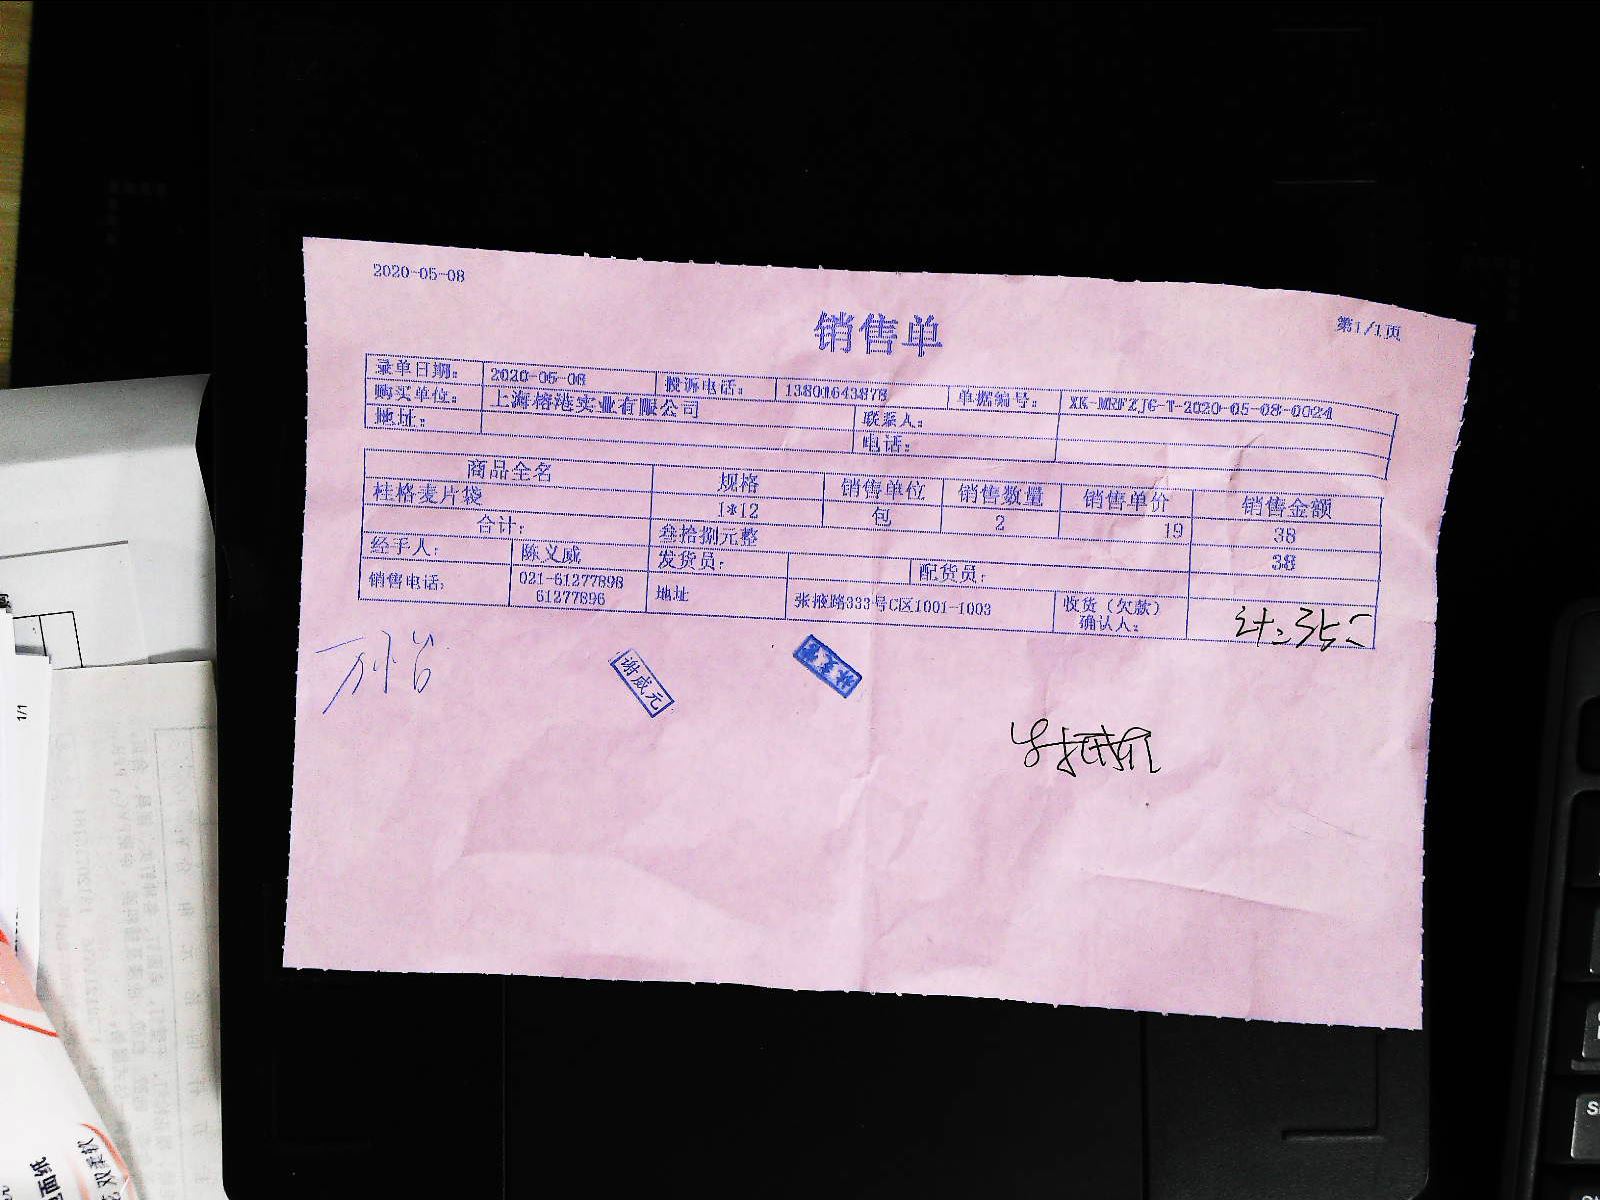 2020-05-08
第1/1页
销售单
录单日期： 2020-05-08 投诉电话： 13801643878 单据编号： XK-MRFZJG-T-2020-05-08-0024
购买单位： 上海榕港实业有限公司 联系人：
地址： 电话：
商品全名 规格 销售单位 销售数量 销售单价 销售金额
桂格麦片袋 1*12 包 2 19 38
合计： 叁拾捌元整 38
经手人： 陈义威 发货员： 配货员：
销售电话： 021-61277898 地址 张掖路333号C区1001-1003 收货（欠款）
61277896 确认人：
谢威元
1/1